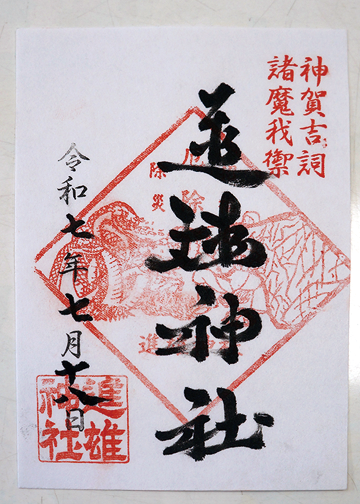 神賀吉詞
諸魔我禦
進雄神社
除災
令和七年七月十八日
進雄
神社